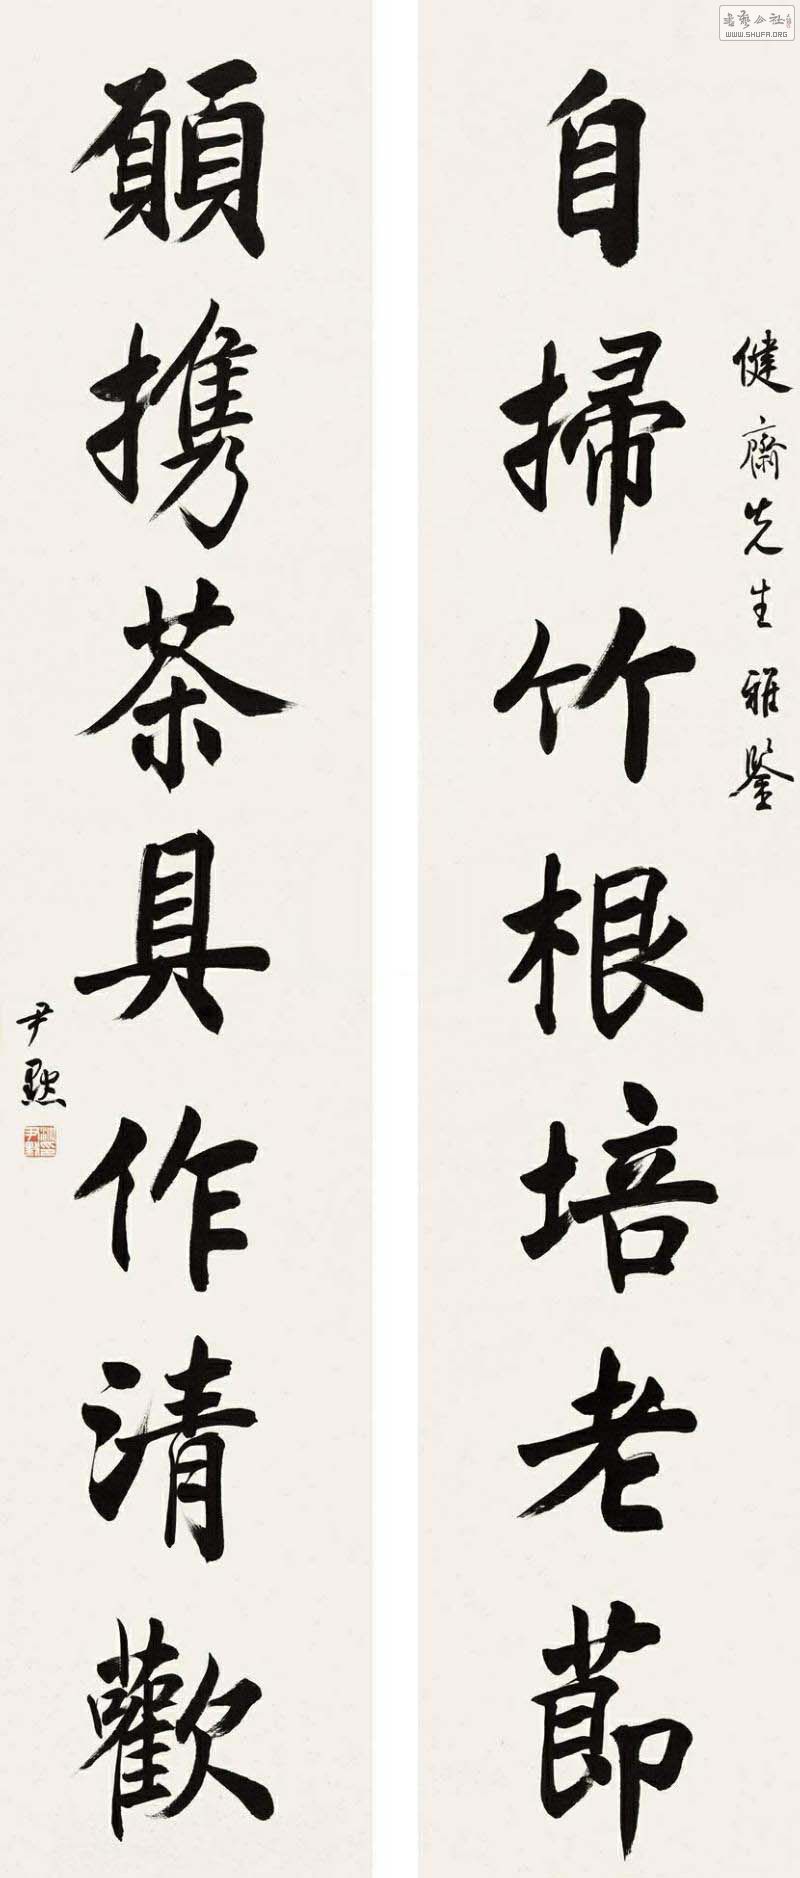 健齋先生雅鑒
自掃竹根培老節
願携茶具作清歡
尹默
書藝公社
WWW.SHUFA.ORG